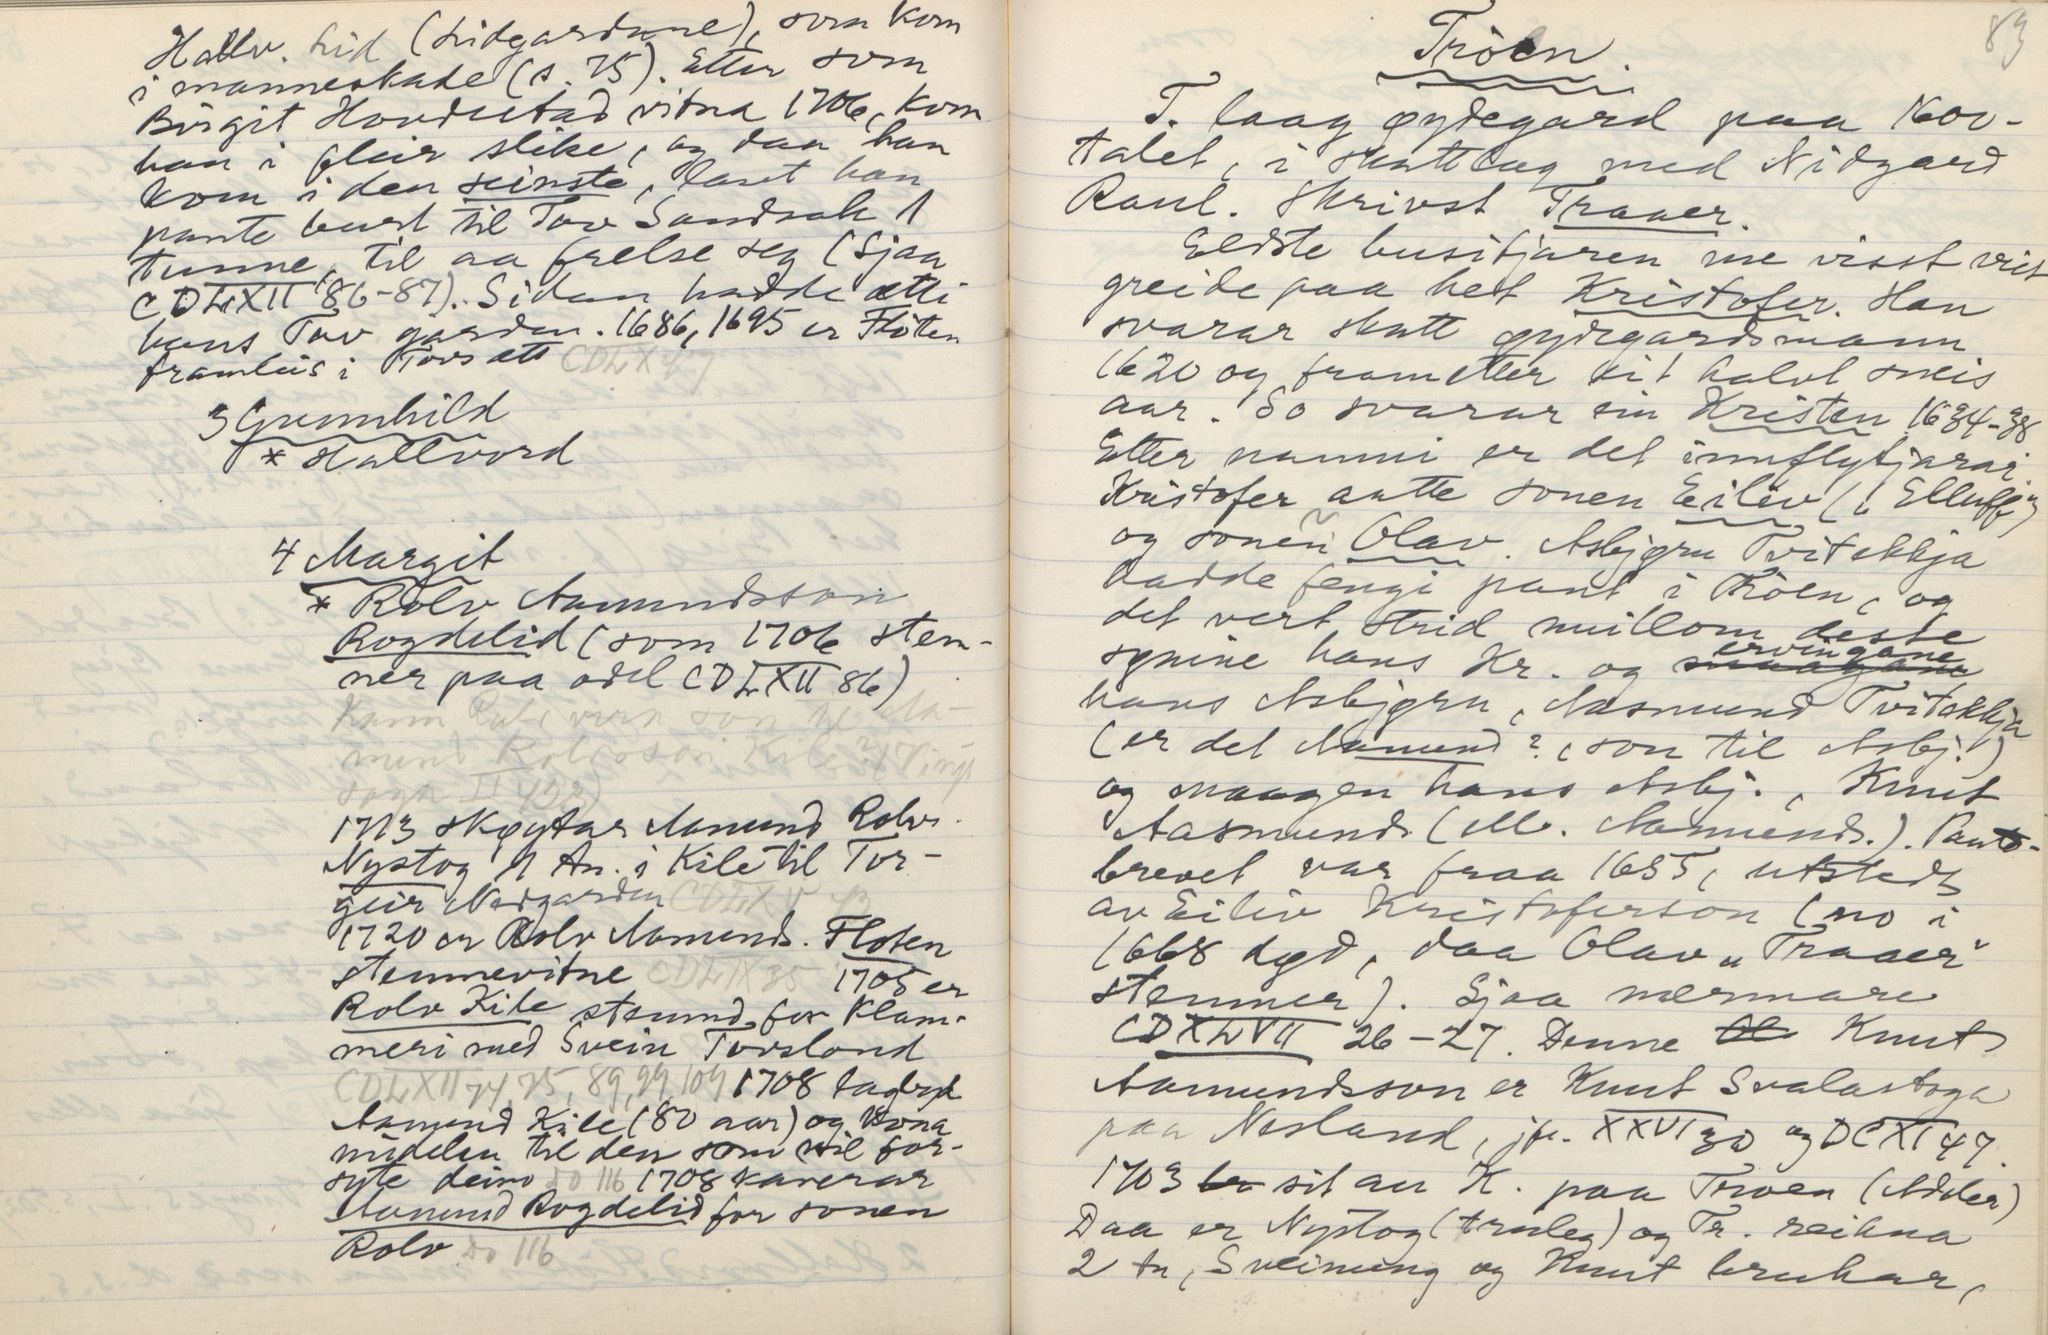 Hallv. Lid (Lidgardane), som kom
i manneskade (s. 75). Etter som
Birgit Hovdestad vitna 1706, kom
han i fleir slike, og daa han
kom i den seinste, laut han
pante burt til Tov Sandsak 1
tunne, til aa frelse seg (Sjaa
CDLXII 86-87). Sidan hadde ætti
hans Tov garden. 1686, 1695 er Flöten
framleis i Tovs ætt CDLX 47
3 Gunnhild
* Hallvord
4 Margit
* Rolv Aamundsson
Rogdelid (som 1706 stem-
ner paa odel CDLXII 86)
Kann Rolv vera son til Aa-
mund Rolvsson Kile? (Vinje
soga II 452)
1713 skøytar Aamund Rolvs.
Nystog 1 An. i Kile til Tor-
geir Nedgarden CDLXV 43
1720 er Rolv Aamunds. Floten
stemnevitne CDLIX 35 1705 er
Rolv Kile stemnd for klam-
meri med Svein Torsland
CDLXII 74, 75, 89, 99, 109 1708 lagbyd
Aamund Kile (80 aar) og kona
midelen til den som vil for-
syte deim Do 116 1708 kaverar
Aamund Rogdelid for sonen
Rolv Do 116
83
Tröen.
T. laag øydegard paa 1600-
talet, i skattlag med Nidgard
Raul. Skrivst Traaer.
Eldste busitjaren me visst veit
greide paa het Kristofer. Han
svarar skatt øydegardsmann
1620 og frametter eit halvt sneis
aar. So svarar ein Kristen 1634-38
Etter namni er det innflytjarar
Kristofer aatte sonen Eiliv („Elluff“)
og sonen Olav. Asbjørn Tvitekkja
hadde fengi pant i Tröen, og
det vert strid millom desse
sønine hans Kr. og ervingane
hans Asbjørn, Aasmund Tvitekkja
(er det Aamund?, son til Asbj.?)
og maagen hans Asbj., Knut
Aasmunds. (ell. Aamunds.). Pante-
brevet var fraa 1655, utstedt
av Eiliv Kristoferson (no i
1668 død, daa Olav „Traaer“
stemner). Sjaa nærmare
CDXLVII 26-27. Denne Knut
Aamundsson er Knut Svalastoga
paa Nesland, jfr. XXVI 30 og DCXI 47.
1703 sit au K. paa Troen (Adder)
Daa er Nystog (truleg) og Tr. reikna
2 tn, Sveinung og Knut brukar,